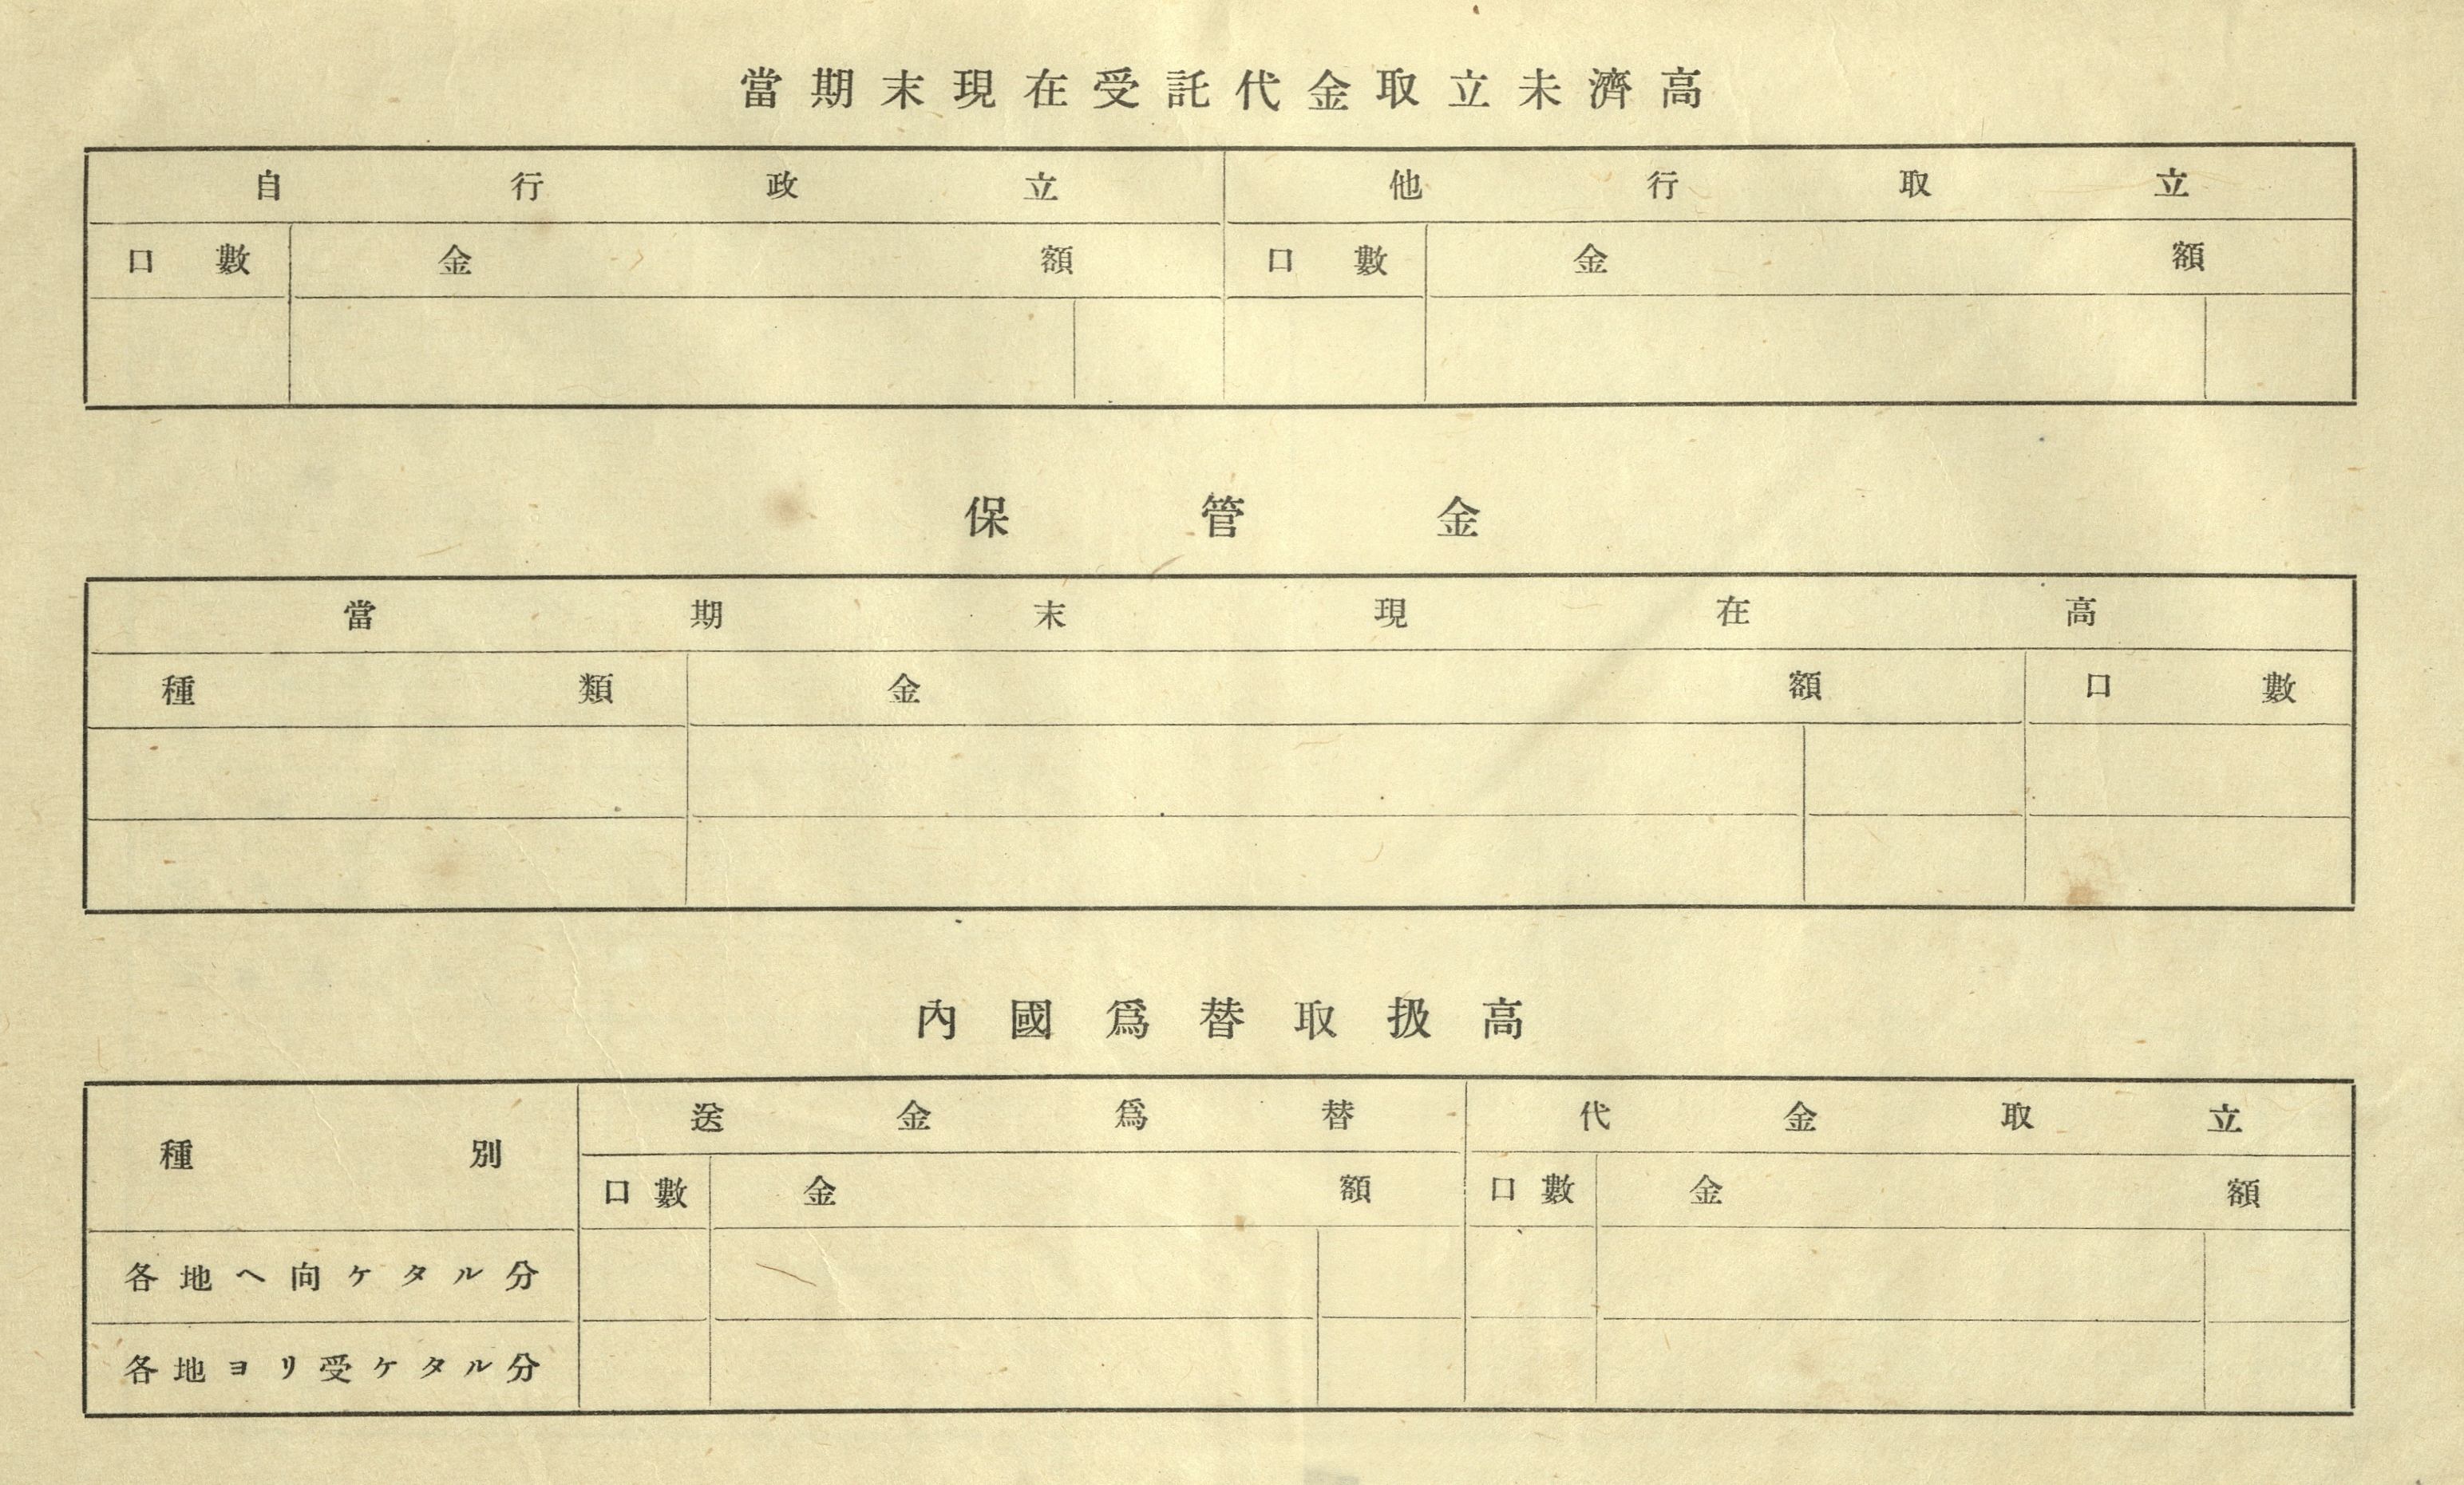 當期末現在受託代金取立未濟高
自行政立 他行取立
口數 金額 口數 金額
保管金
當期末現在高
種類 金額 口數
內國爲替取扱高
種別 送金爲替 代金取立
口數 金額 口數 金額
各地ヘ向ケタル分
各地ヨリ受ケタル分